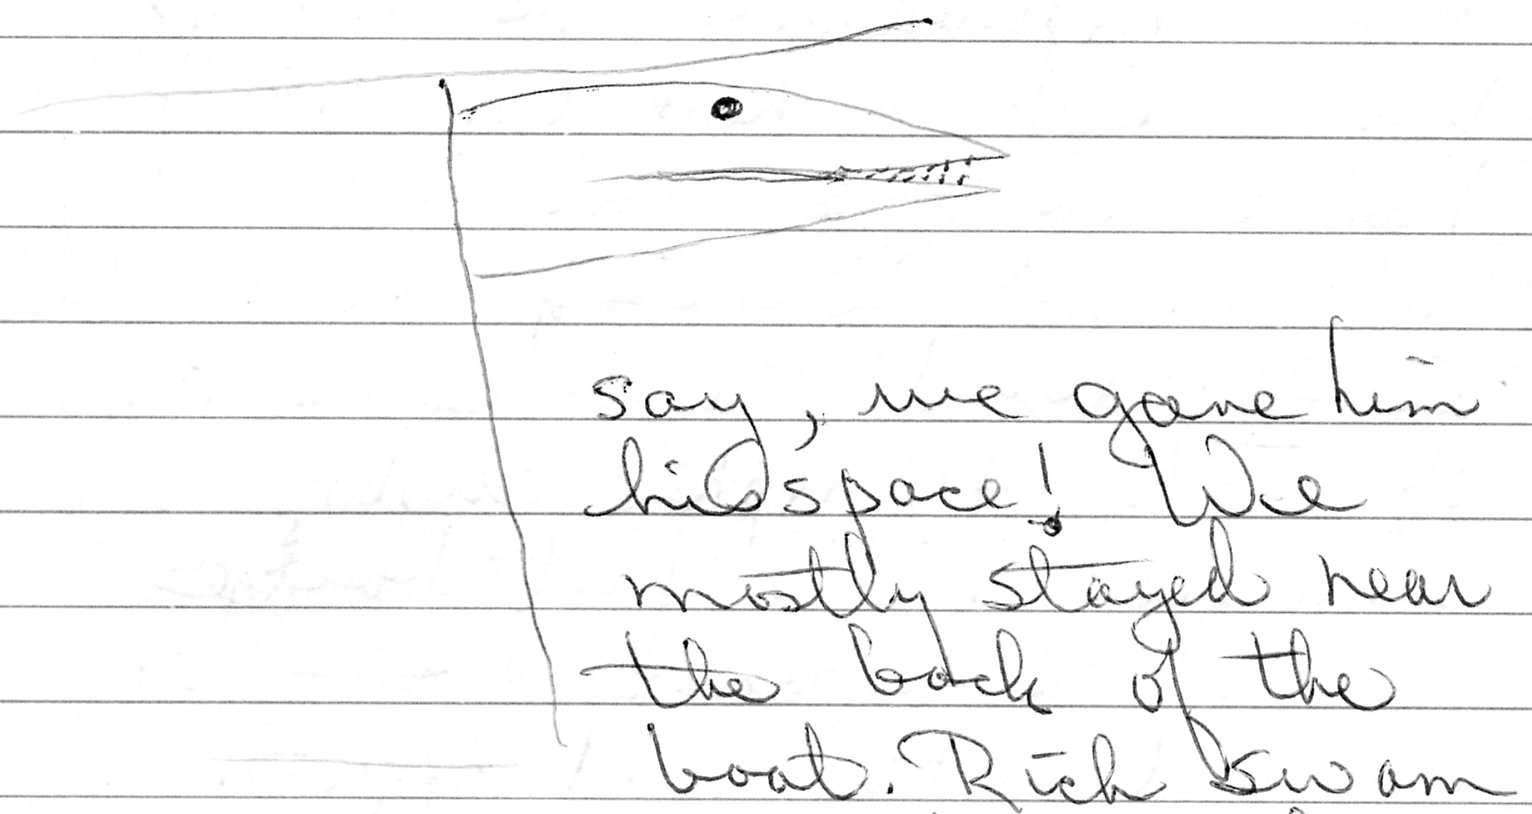 say, we gave him
his space! We
mostly stayed near
the back of the
boat. Rich swam